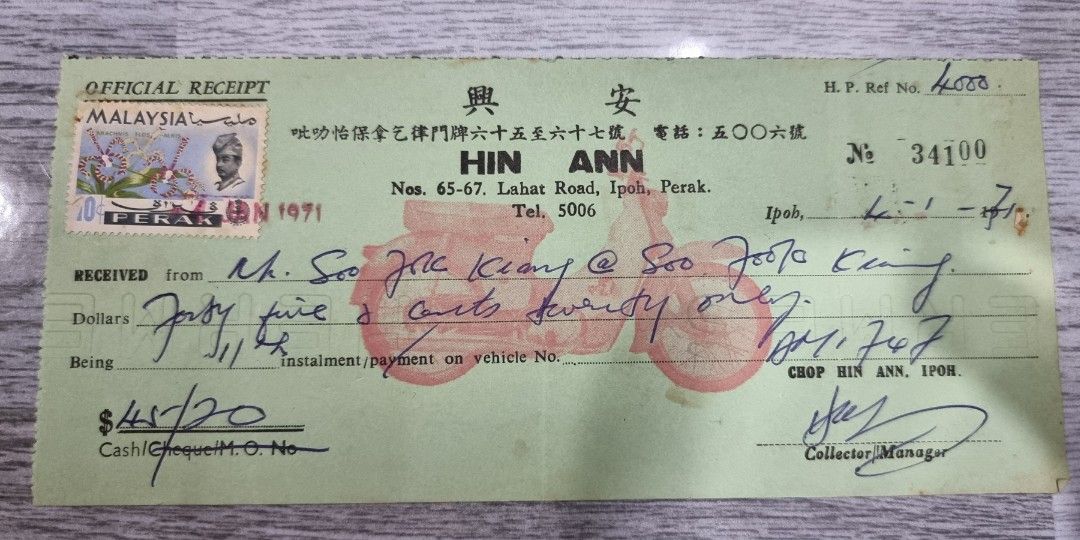 OFFICIAL RECEIPT
H. P. Ref No. 4000.
MALAYSIA مليسيا
ARACHNIS FLOS-AERIS
10c
PERAK
4 JAN 1971
興 安
吡叻怡保拿乞律門牌六十五至六十七號 電話:五〇〇六號
HIN ANN
Nos. 65-67. Lahat Road, Ipoh, Perak.
Tel. 5006
№ 34100
Ipoh, 4-1-1971.
RECEIVED from Mr. Soo Kiang @ Soo Kiang.
Dollars Forty five & cents twenty only.
Being 11th instalment/payment on vehicle No. AM. 747
CHOP HIN ANN. IPOH.
$ 45/20
Cash/Cheque/M. O. No
Collector/Manager